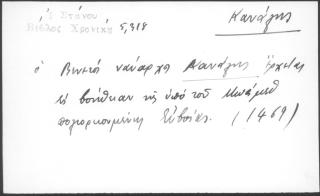 Ἱ Στάνου
Βίβλος Χρονική 5,318
Κανάλης
ὁ Βενετός ναύαρχος Κανάλης ἔρχεται
εἰς βοήθειαν τῆς ὑπό τοῦ Μωάμεθ
πολιορκουμένης Εὐβοίας. (1469)